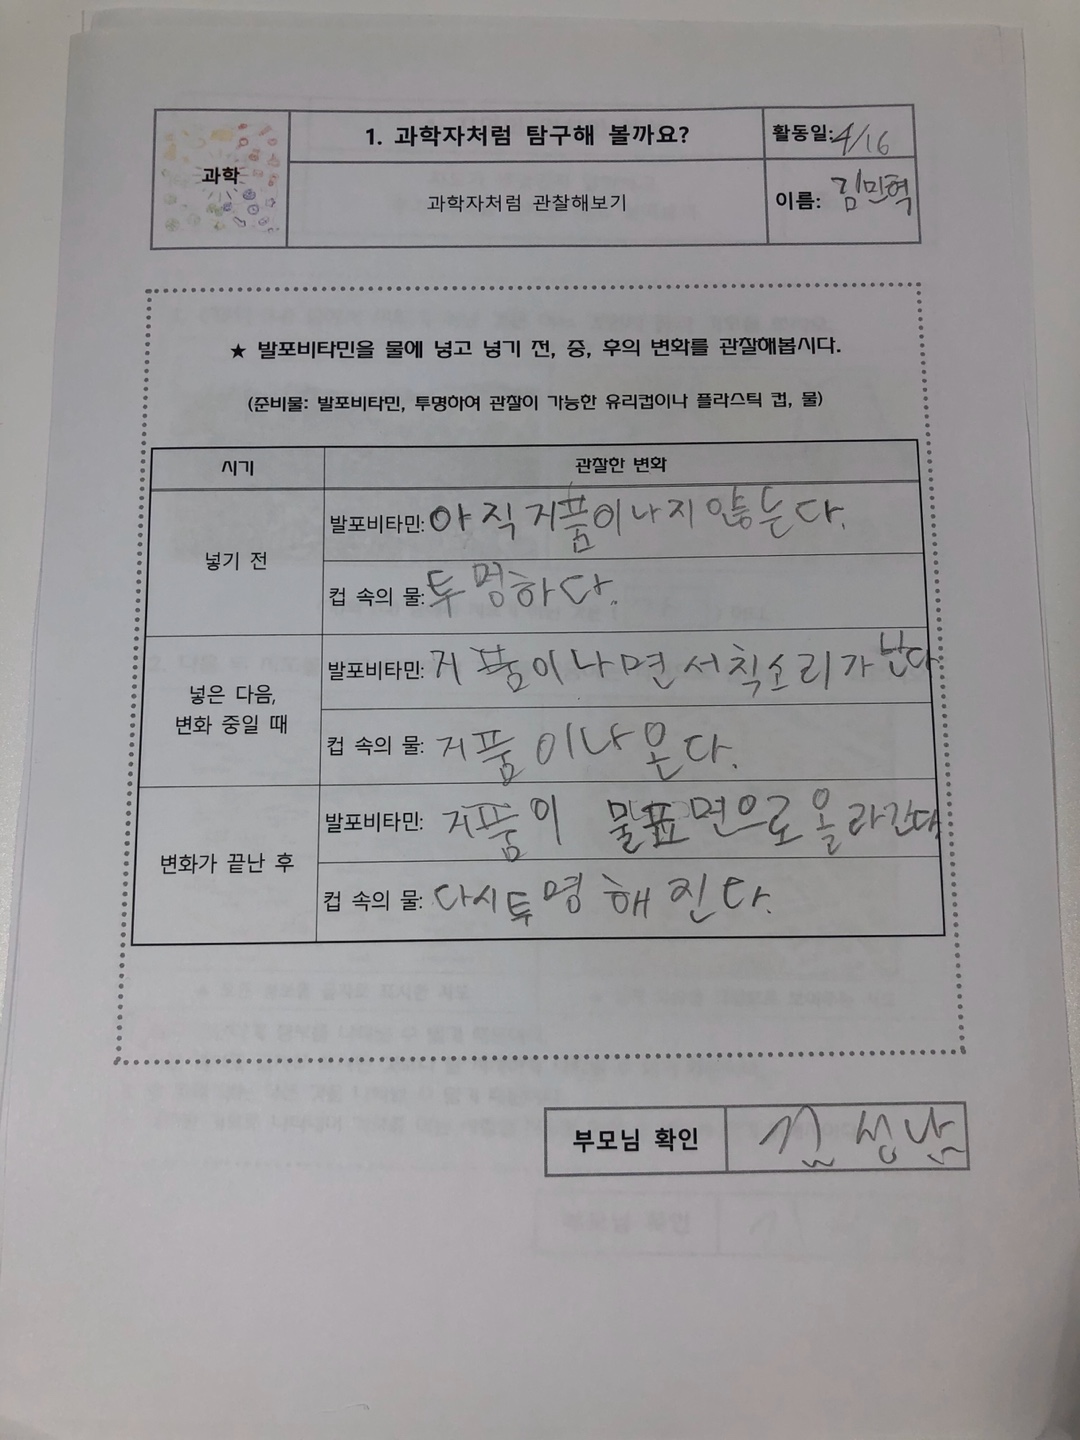 과학
1. 과학자처럼 탐구해 볼까요?
활동일: 4/16
과학자처럼 관찰해보기
이름: 김민혁
★ 발포비타민을 물에 넣고 넣기 전, 중, 후의 변화를 관찰해봅시다.
(준비물: 발포비타민, 투명하여 관찰이 가능한 유리컵이나 플라스틱 컵, 물)
시기
관찰한 변화
넣기 전
발포비타민: 아직 거품이 나지 않는다.
컵 속의 물: 투명하다.
넣은 다음,
변화 중일 때
발포비타민: 거품이 나면서 칙소리가 난다
컵 속의 물: 거품이 나온다.
변화가 끝난 후
발포비타민: 거품이 물표면으로 올라간다
컵 속의 물: 다시 투명해진다.
부모님 확인